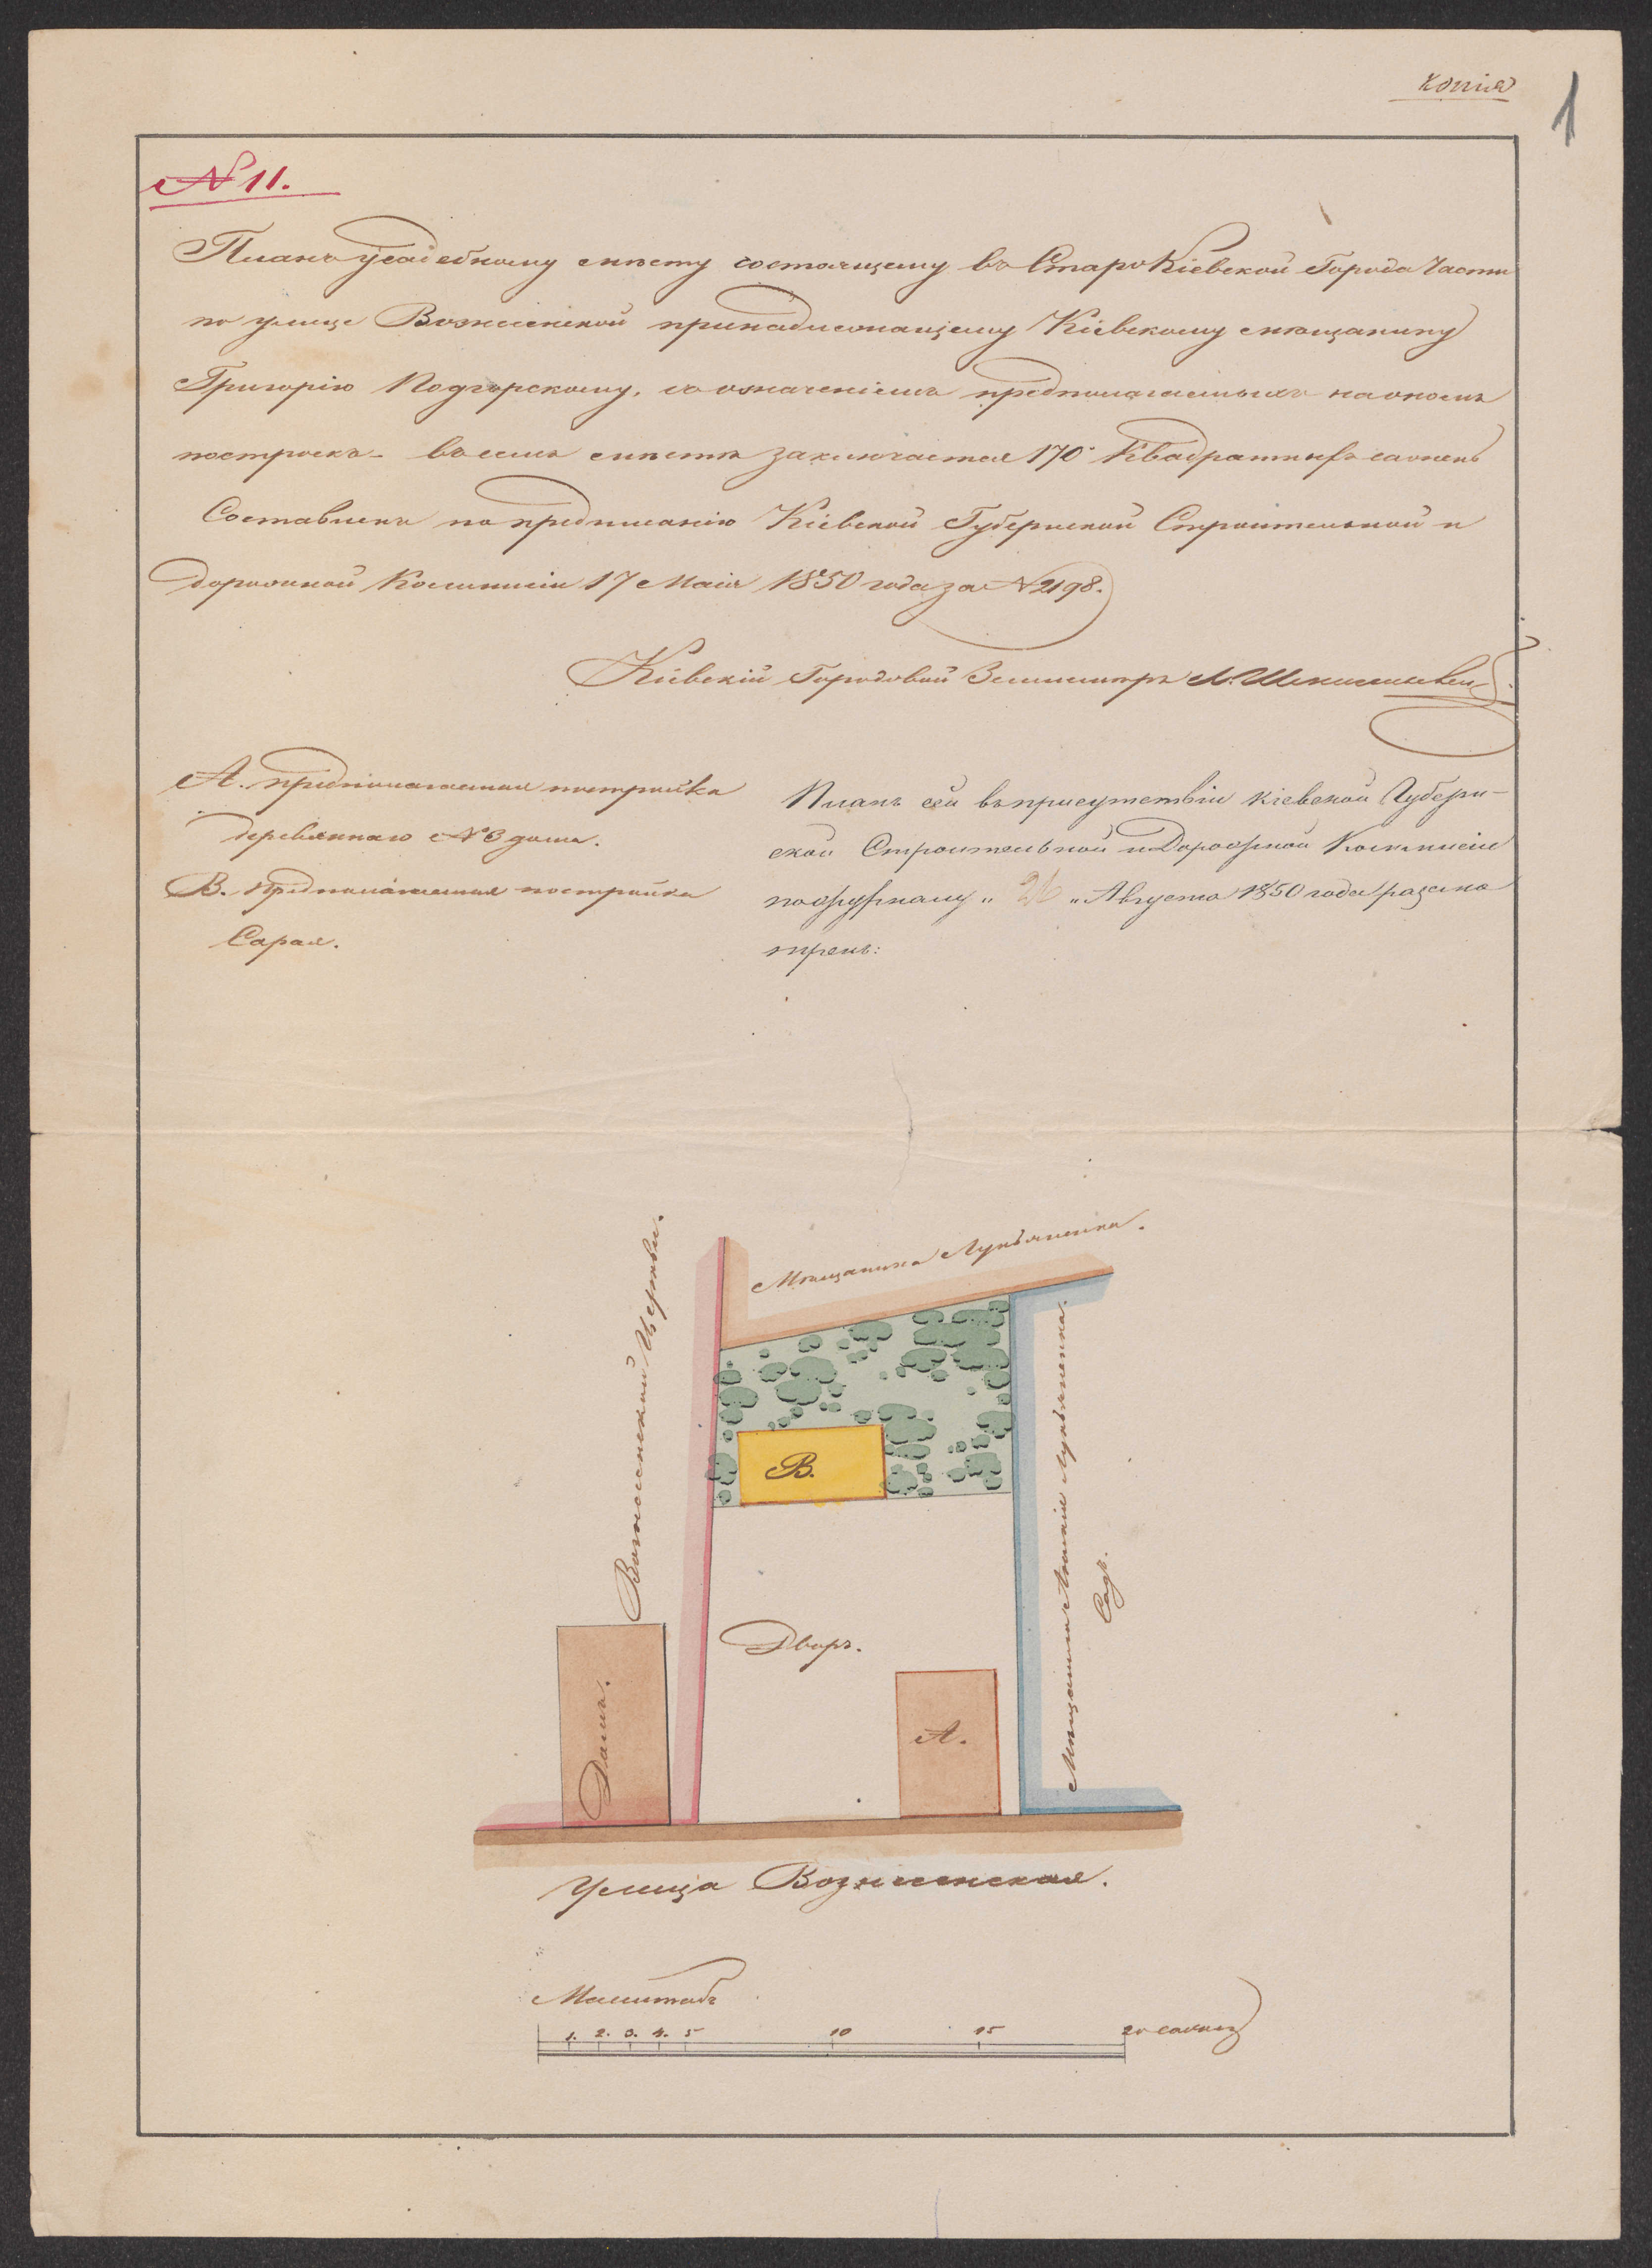 копія
1
№ 11.
Планъ усадебному мѣсту состоящему въ Старокіевской Города Части
по улицѣ Вознесенской принадлежащему Кіевскому мѣщанину
Григорію Подгорскому, со означеніемъ предполагаемыхъ на ономъ
построекъ въ семъ мѣстѣ заключается 170 квадратныхъ саженъ
Составленъ по предписанію Кіевской Губернской Строительной и
дорожной Коммисіи 17 Маія 1850 года за № 2198.
Кіевскій Городовой Землемѣръ
А. предполагаемая постройка
деревяннаго № 3 дома.
В. Предполагаемая постройка
Сарая.
Планъ сей въ присутствіи Кіевской Губерн-
ской Строительной и Дорожной Коммисіи
по журналу „ 26 „ Августа 1850 года разсмо
трѣнъ:
Мѣщанина Лукьяненка.
Вознесенской Церкви.
В.
Мѣщанина Лукьяненка.
Садъ.
Дворъ.
Домъ.
А.
Улица Вознесенская.
Масштабъ
1. 2. 3. 4. 5 10 15 20 саженъ